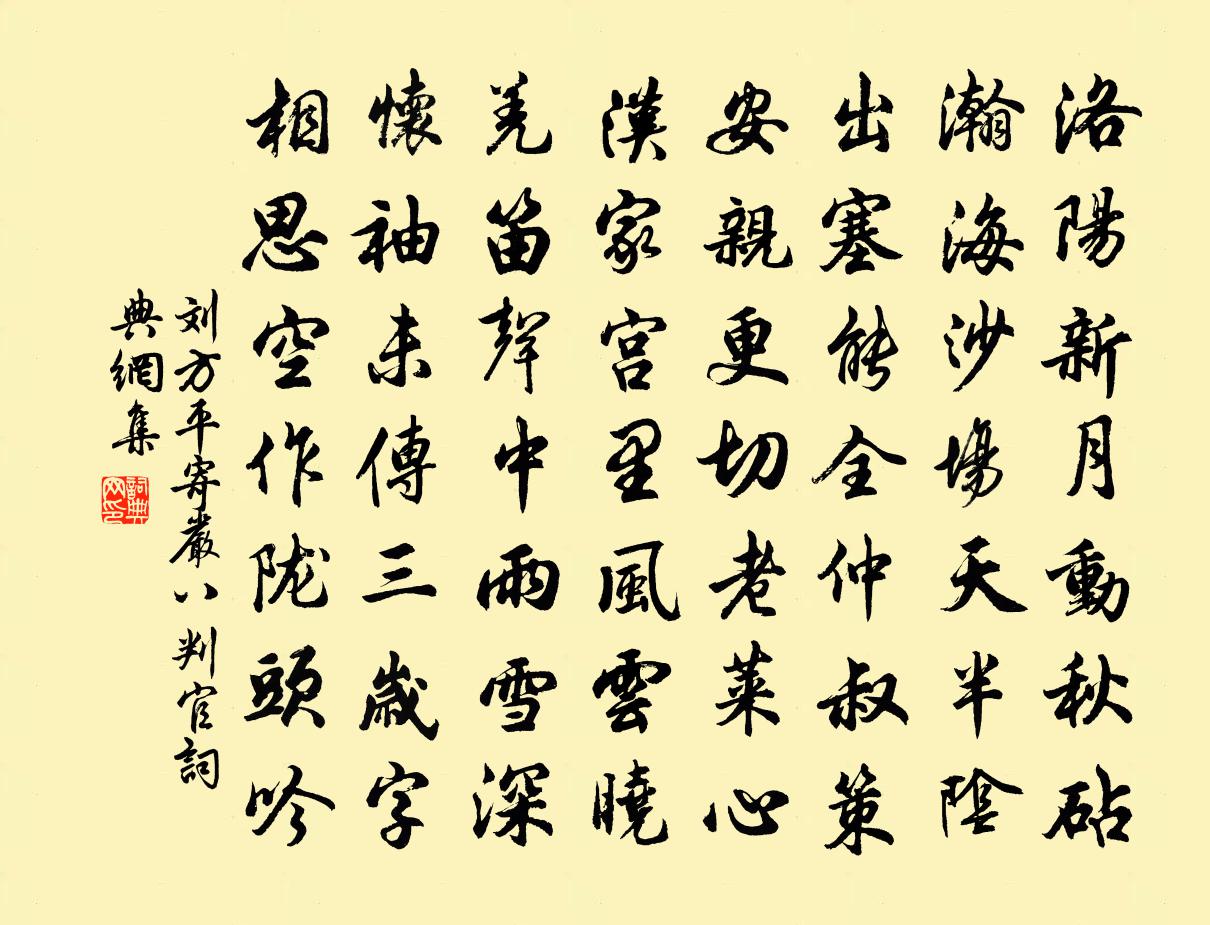 洛陽新月動秋砧
瀚海沙場天半陰
出塞能全仲叔策
安親更切老萊心
漢家宮里風雲曉
羌笛聲中雨雪深
懷袖未傳三歲字
相思空作陇頭吟
刘方平寄嚴八判官詞
典網集
詞典网印